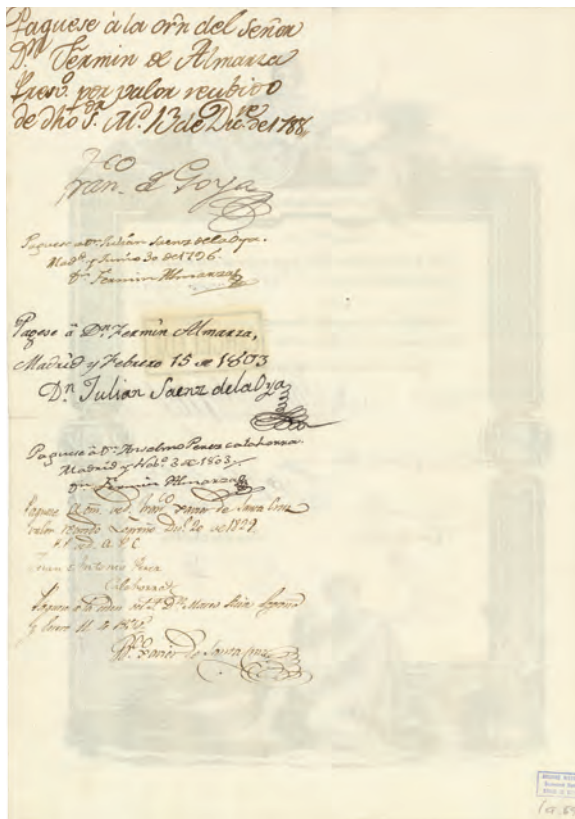 Paguese à la orñ del señor
Dn. Fermin de Almarza
Presvo. por valor recibido
de dho Sor. Md. 13 de Dice. de 1788
Franco. de Goya
Paguese a Dn. Julian Saenz de la Oya.
Madd. y Junio 30 de 1796.
Dn. Fermin Almarza
Pagese â Dn. Fermin Almarza,
Madrid y Febrero 15 de 1803
Dn Julian Saenz de la Oya
Paguese â Dn. Anselmo Perez Calahorra.
Madrid y Nobe. 3 de 1803.
Dn. Fermin Almarza
Paguese Xavier de Santa Cruz
valor Logroño 20 de 1829
Antonio Perez
Calahorra
Paguese a la orden del Sr. Dn. Marcos
y Enero 11 de
Xavier de Santa Cruz